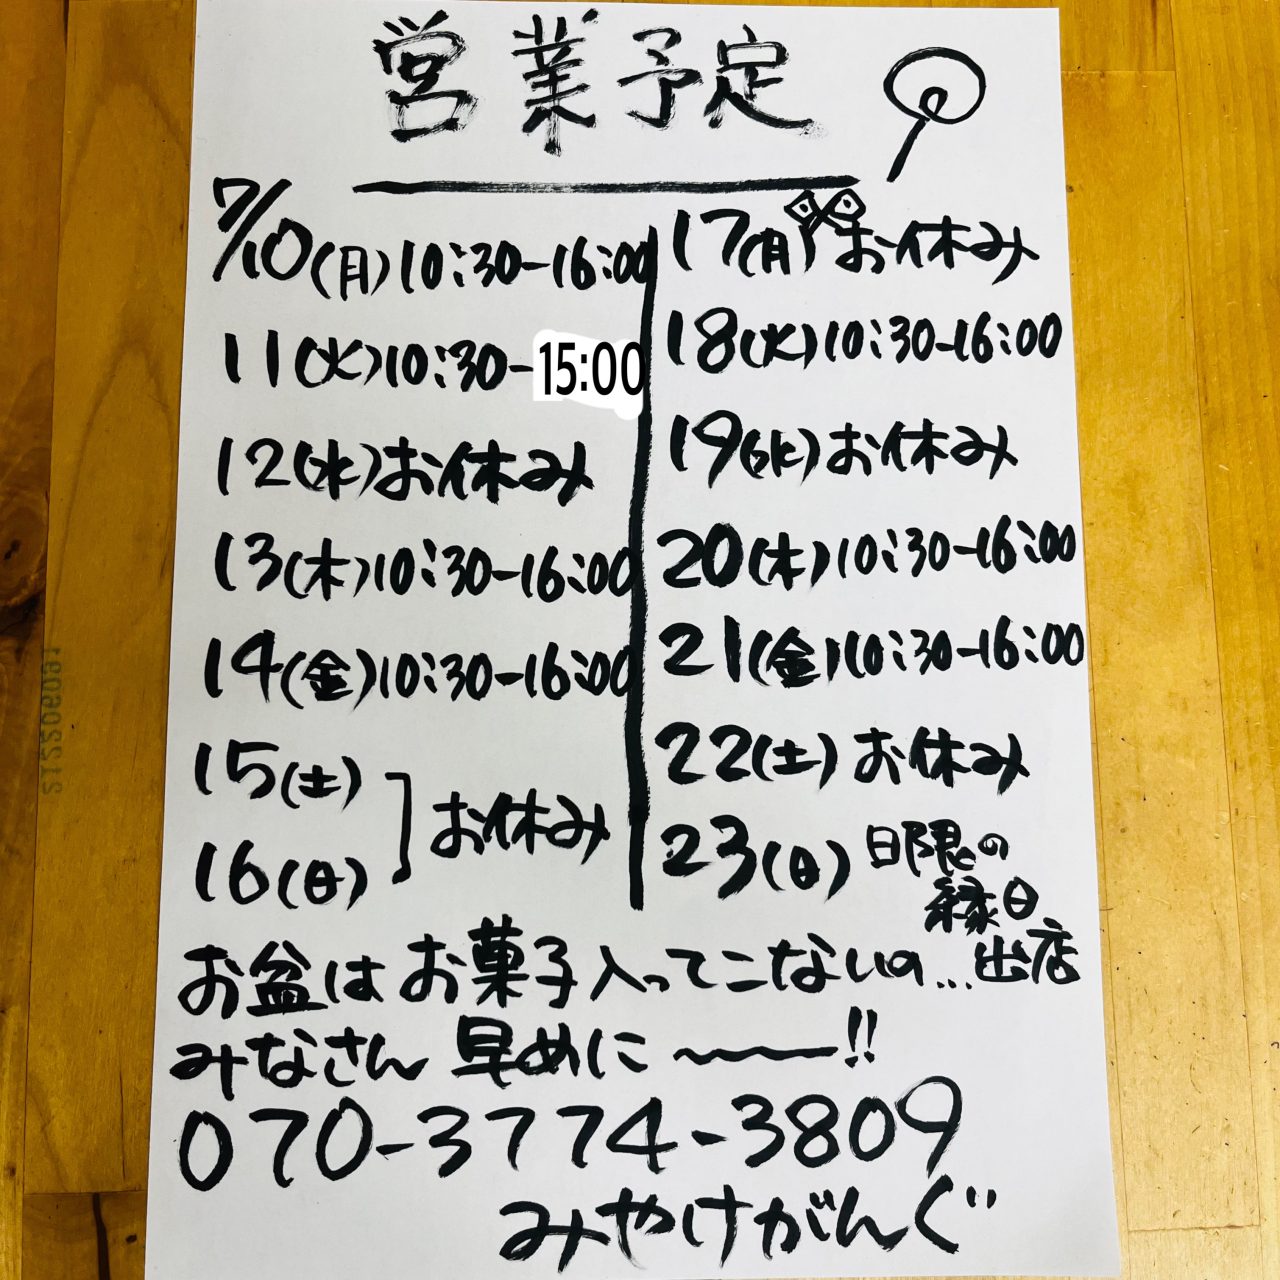 営業予定
7/10(月)10:30-16:00
11(火)10:30-15:00
12(水)お休み
13(木)10:30-16:00
14(金)10:30-16:00
15(土)
16(日)
お休み
17(月)お休み
18(火)10:30-16:00
19(水)お休み
20(木)10:30-16:00
21(金)10:30-16:00
22(土)お休み
23(日)日限の
縁日
出店
お盆はお菓子入ってこないの…
みなさん 早めに〜!!
070-3774-3809
みやけがんぐ
19060221S